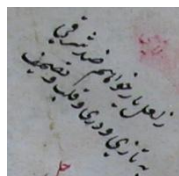 ز لعل یار خواهم ضد شرقی
به تازی و دری و قلب و تصحیف